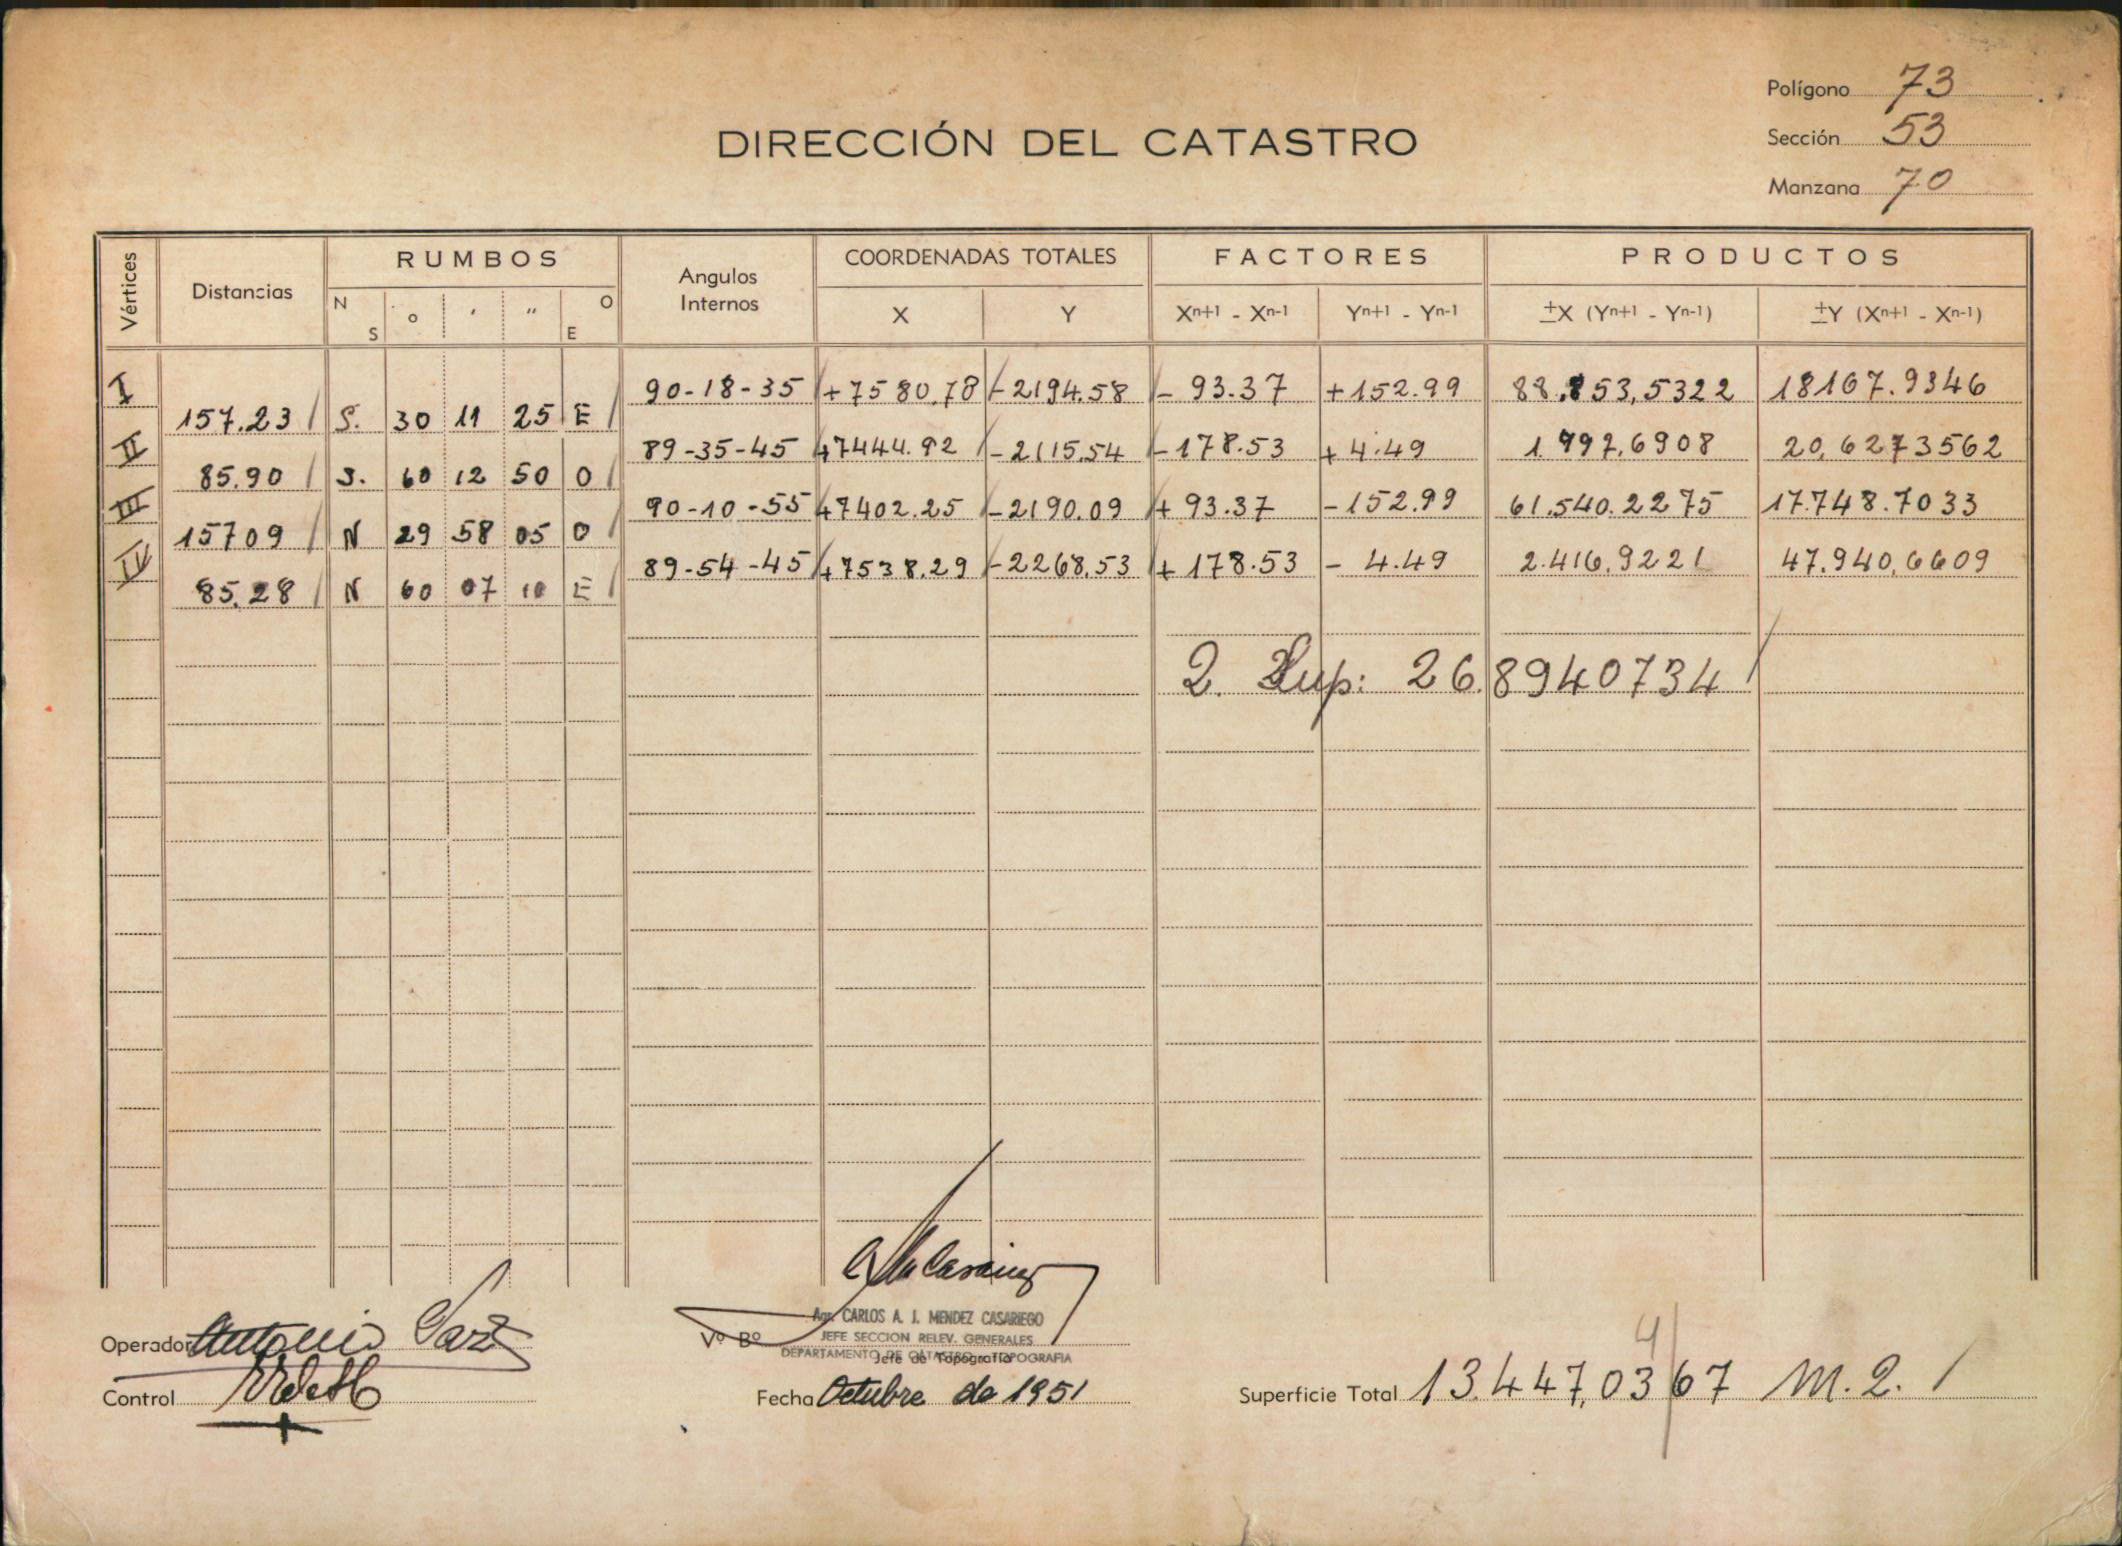 Polígono 73
DIRECCIÓN DEL CATASTRO
Sección 53
Manzana 70
Vértices Distancias RUMBOS Angulos Internos COORDENADAS TOTALES FACTORES PRODUCTOS
N S o ' " O E X Y Xn+1 - Xn-1 Yn+1 - Yn-1 ±X (Yn+1 - Yn-1) ±Y (Xn+1 - Xn-1)
I 90-18-35 +7580.78 -2194.58 - 93.37 +152.99 88.853,5322 18167.9346
157.23 S. 30 11 25 E
II 89-35-45 +7444.92 -2115.54 -178.53 +4.49 1.997,6908 20,6273562
85.90 S. 60 12 50 O
III 90-10-55 +7402.25 -2190.09 + 93.37 -152.99 61.540.2275 17.748.7033
157 09 N 29 58 05 O
IV 89-54-45 +7538.29 -2268.53 + 178.53 - 4.49 2.416,9221 47.940,6609
85.28 N 60 07 10 E
2. Sup: 26.8940734
Agr. CARLOS A. J. MENDEZ CASARIEGO
Operador Antonio Vº Bº JEFE SECCION RELEV. GENERALES
DEPARTAMENTO DE CATASTRO Y TOPOGRAFIA
Jefe de Topografía
4
Control Fecha Octubre de 1951 Superficie Total 13.447,03 67 M. 2.